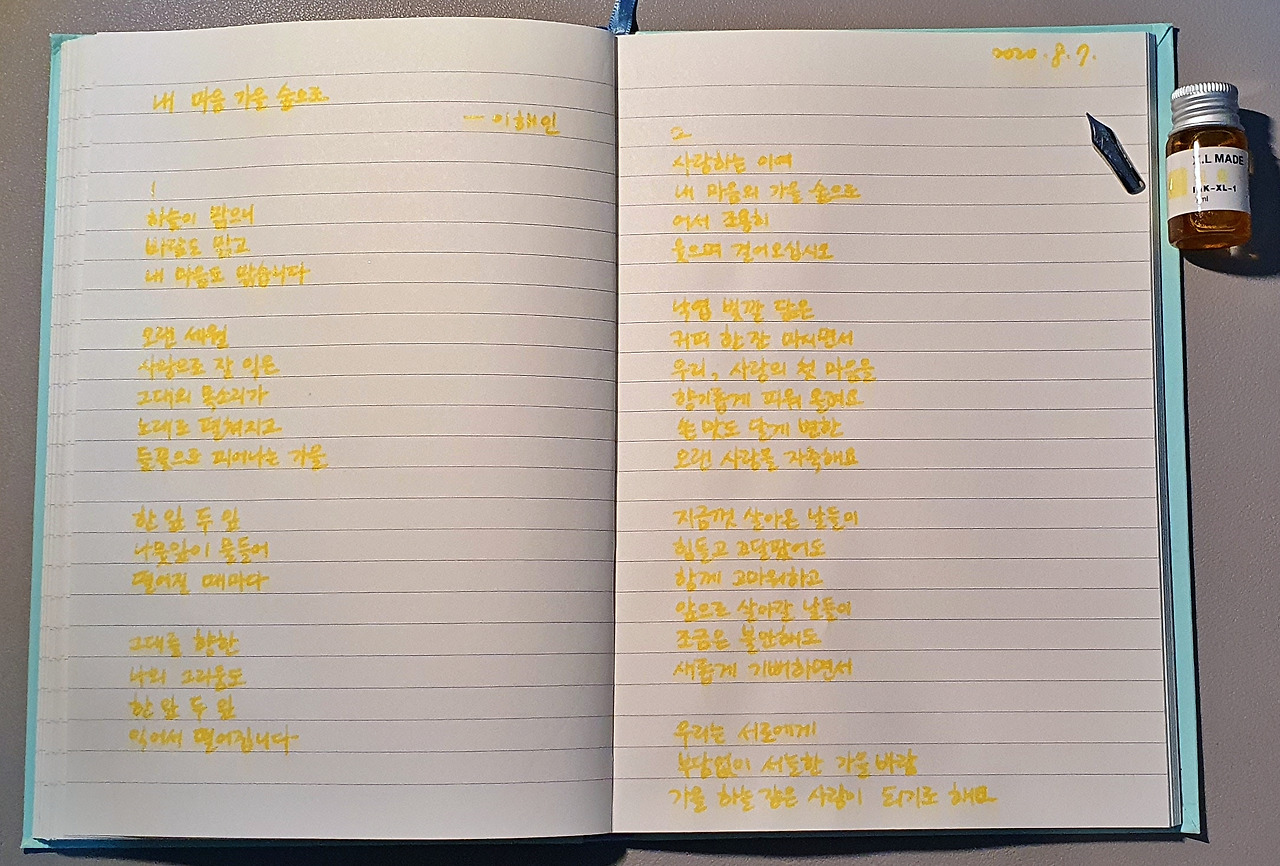 내 마음 가을 숲으로
- 이해인
1
하늘이 맑으니
바람도 맑고
내 마음도 맑습니다
오랜 세월
사랑으로 잘 익은
그대의 목소리가
노래로 펼쳐지고
들꽃으로 피어나는 가을
한 잎 두 잎
나뭇잎이 물들어
떨어질 때마다
그대를 향한
나의 그리움도
한 잎 두 잎
익어서 떨어집니다
2020.8.7.
2
사랑하는 이여
내 마음의 가을 숲으로
어서 조용히
웃으며 걸어오십시오
낙엽 빛깔 닮은
커피 한 잔 마시면서
우리, 사랑의 첫 마음을
향기롭게 피워 올려요
쓴 맛도 달게 변한
오랜 사랑을 자축해요
지금껏 살아온 날들이
힘들고 고달팠어도
함께 고마워하고
앞으로 살아갈 날들이
조금은 불안해도
새롭게 기뻐하면서
우리는 서로에게
부담없이 서늘한 가을 바람
가을 하늘 같은 사람이 되기로 해요
X.L MADE